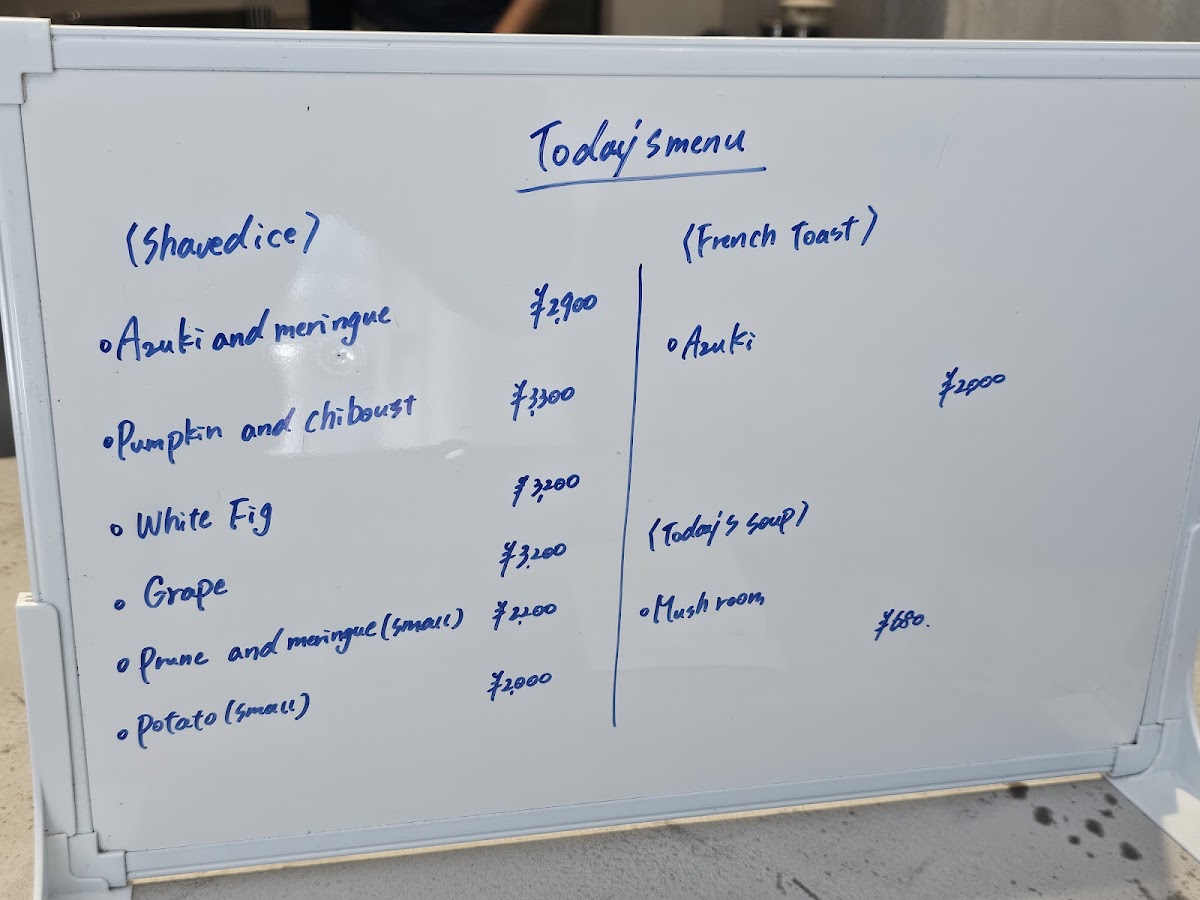 Today's menu
(Shaved ice)
• Azuki and meringue ¥2,900
• Pumpkin and chiboust ¥3,300
• White Fig ¥3,200
• Grape ¥3,200
• Prune and meringue (small) ¥2,200
• Potato (small) ¥2,000
(French Toast)
• Azuki
¥2,000
(Today's soup)
• Mushroom
¥680.